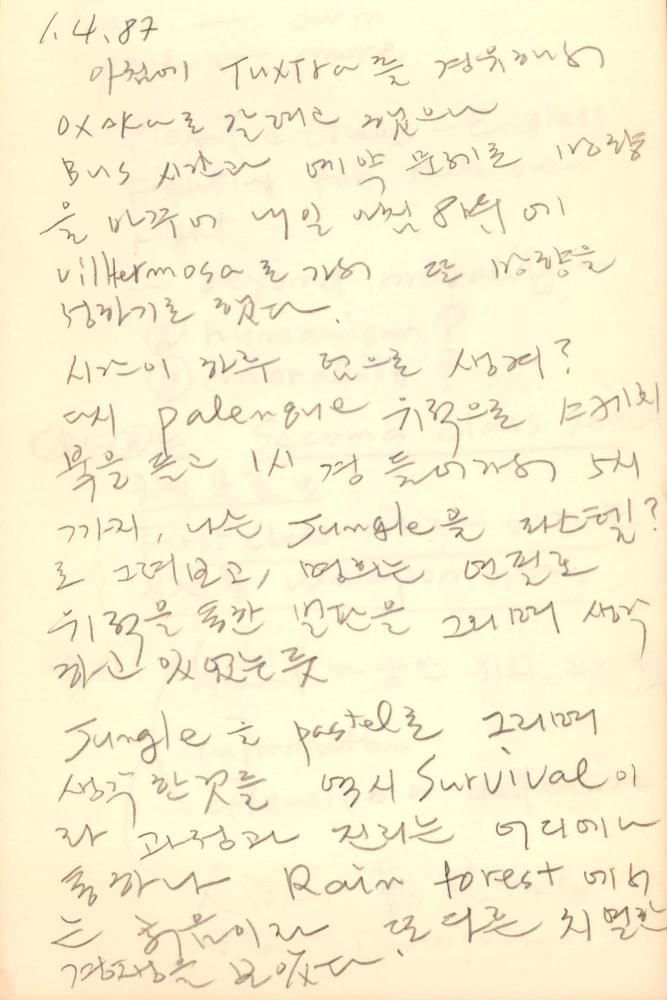 1.4.87
아침에 Tuxtra를 경유해서
oxaka로 갈려고 했으나
Bus 시간과 예약 문제로 방향
을 바꾸어 내일 아침 8시 에
villHermosa로 가서 또 방향을
정하기로 했다.
시간이 하루 덤으로 생겨?
다시 palenque 유적으로 스케치
북을 들고 1시 경 들어가서 5시
까지, 나는 Jungle을 파스텔?
로 그려보고, 명희는 연필로
유적을 통한 벌판을 그리며 생각
하고 있었는 듯
Jungle 을 pastel로 그리며
생각 한것들 역시 Survival이
라 과정과 진리는 어디에나
통하나 Rain forest 에서
는 처음이라 또다른 치열한
경쟁을 보았다.